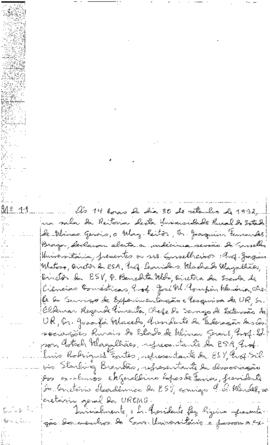 Nº 11
Às 14 horas do dia 30 de setembro de 1952,
na sala da Reitoria desta Universidade Rural do Estado
de Minas Gerais, o Mag. Reitor, Dr. Joaquim Fernandes
Braga, declarou aberta a sessão do Conselho
Universitário, presentes os srs Conselheiros: Prof. Joaquim
Matoso, Diretor da ESA, Prof. Machado Magalhães,
Diretor da ESV, D. Benedita Melo, Diretora da Escola de
Ciências Domésticas, Prof. José M. Pompéu Memória, che-
fe do Serviço de Experimentação e Pesquisa da UR, Dr.
Regende Pimenta, Chefe do Serviço de Extensão da
UR, Dr. Josafá Macedo, Presidente da Federação de As-
sociações Rurais do Estado de Minas Gerais, Prof. Ed-
son Potsch Magalhães, representante da ESA, Prof.
Luis Rodrigues Fontes, representante da ESV, Prof. Sil-
vio Starling Brandão, representante da Associação
dos ex-alunos e Lopes de Souza, presidente
do Diretório Acadêmico da ESV, comigo se-
cretário geral da UREMG.
Inicialmente, o Sr. Presidente fez ligeira apresenta-
ção dos membros do Cons. Universitário e passou a